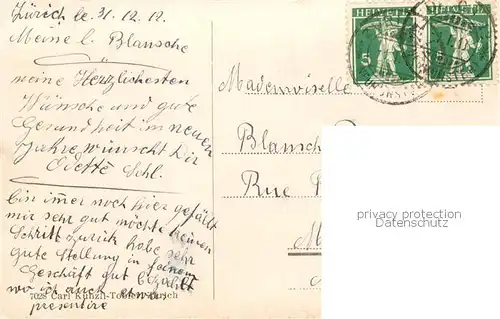 Zürich le. 31. 12. 12.
Meine l. Blansche
meine Herzlichsten
Wünsche und gute
Gesundheit im neuen
Jahre wünscht Dir
Odette Schl.
bin immer noch hier gefällt
mir sehr gut möchte keinen
Schritt zurück habe sehr
gute Stellung in feinem
Geschäft gut bezahlt
wo ich auch etwas
presentire
7028 Carl Künzli-Tobler, Zürich
HELVETIA
5
HELVETIA
Mademoiselle
Blansch
Rue
M
privacy protection
Datenschutz